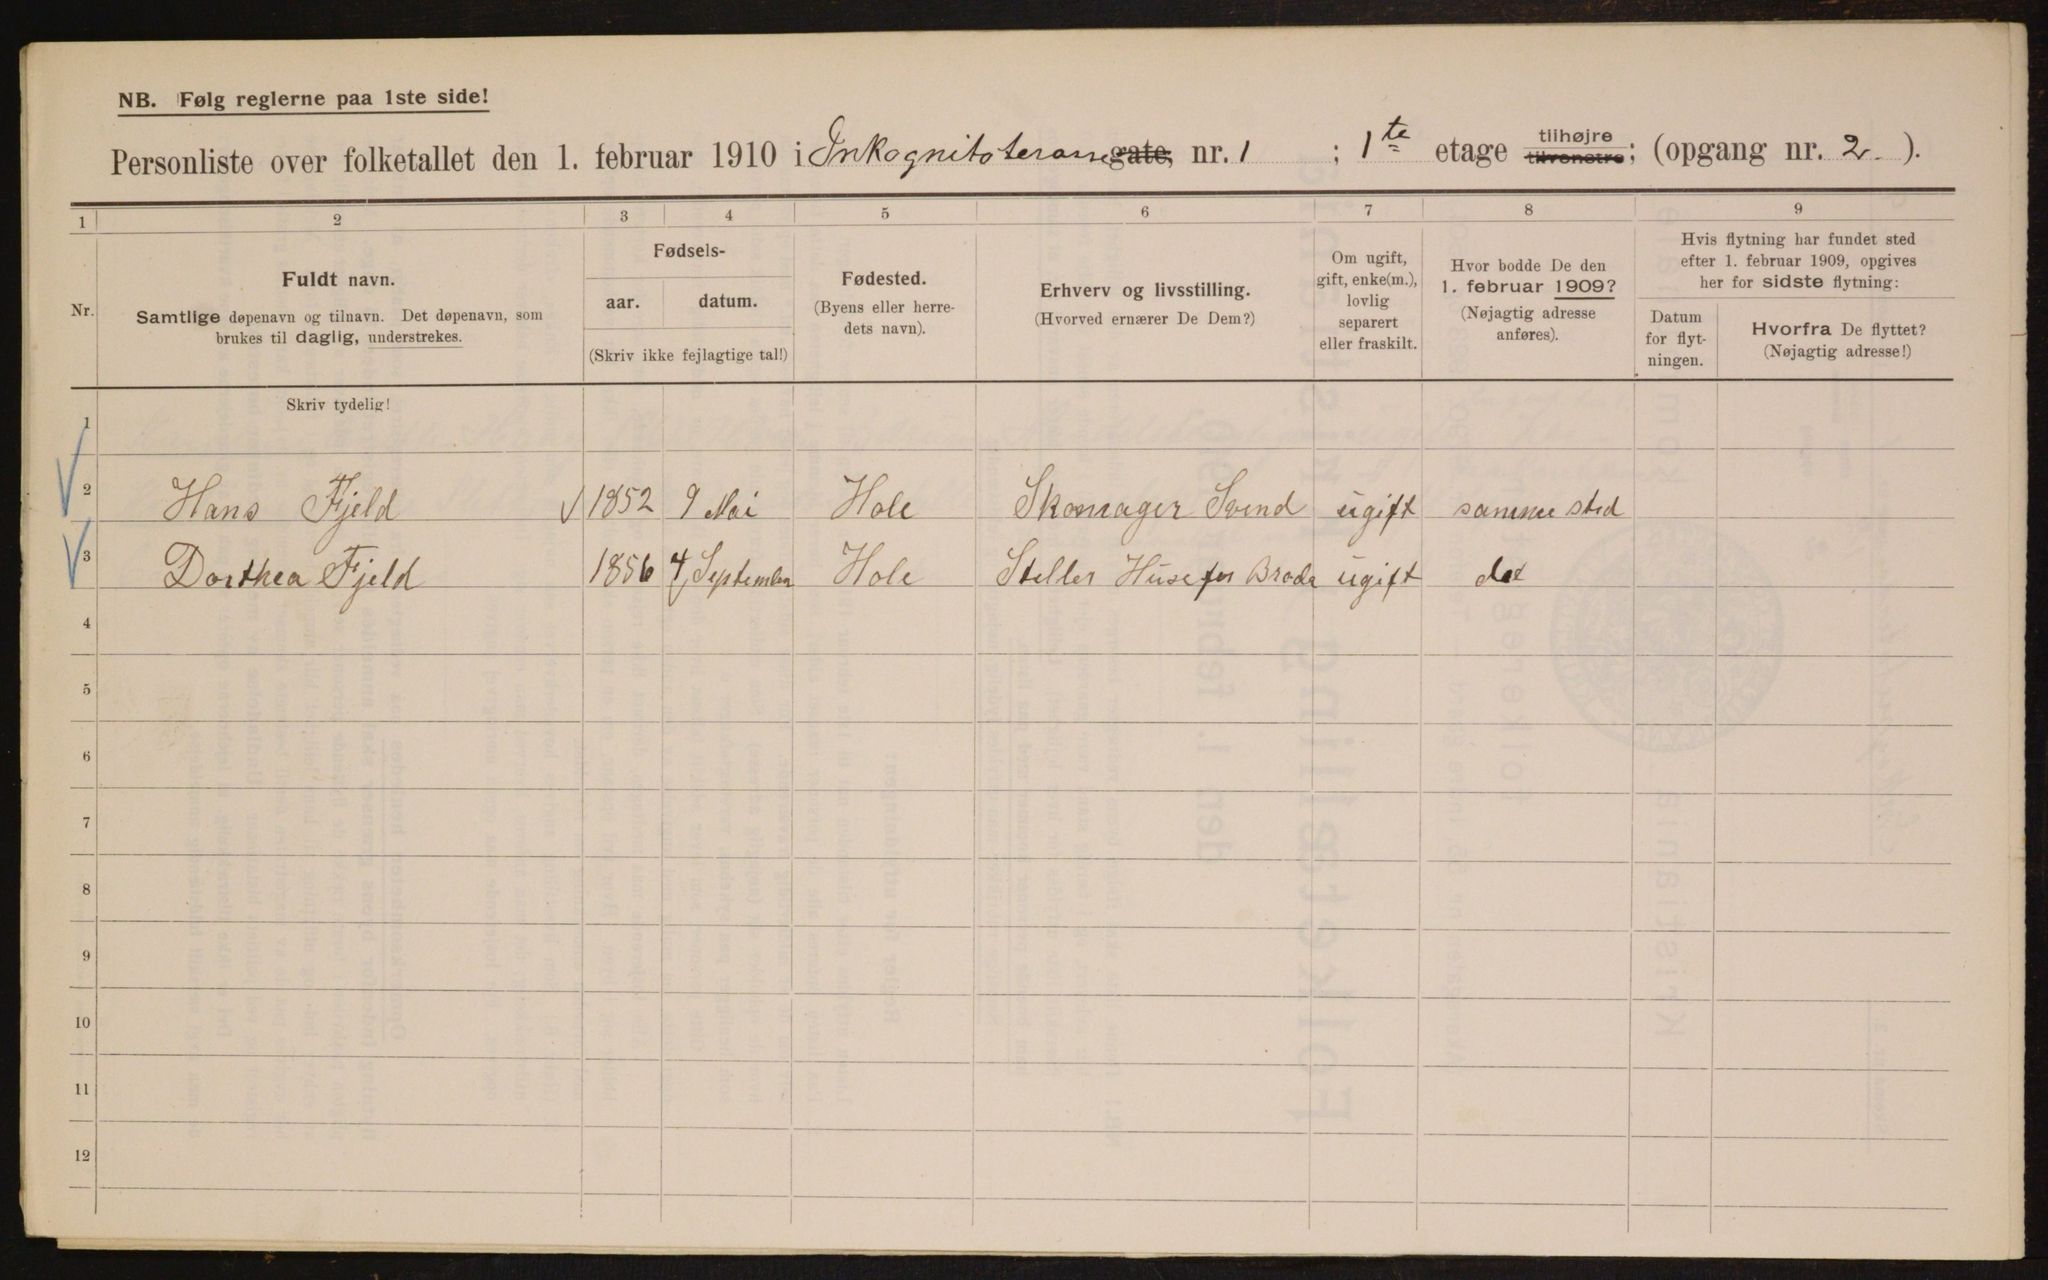 NB. Følg reglerne paa 1ste side!
Personliste over folketallet den 1. februar 1910 i Inkognitoterasse gate, nr. 1 ; 1te etage tilhøjre tilvenstre; (opgang nr. 2. ).
1 2 3 4 5 6 7 8 9
Nr.
Fuldt navn.
Samtlige døpenavn og tilnavn. Det døpenavn, som
brukes til daglig, understrekes.
Fødsels-
aar. datum.
(Skriv ikke fejlagtige tal!)
Fødested.
(Byens eller herre-
dets navn).
Erhverv og livsstilling.
(Hvorved ernærer De Dem?)
Om ugift,
gift, enke(m.),
lovlig
separert
eller fraskilt.
Hvor bodde De den
1. februar 1909?
(Nøjagtig adresse
anføres).
Hvis flytning har fundet sted
efter 1. februar 1909, opgives
her for sidste flytning:
Datum
for flyt-
ningen.
Hvorfra De flyttet?
(Nøjagtig adresse!)
Skriv tydelig!
1
2 Hans Fjeld 1852 9 Mai Hole Skomager Svend ugift samme sted
3 Dorthea Fjeld 1856 4 September Hole Steller Huse for Broder ugift det
4
5
6
7
8
9
10
11
12